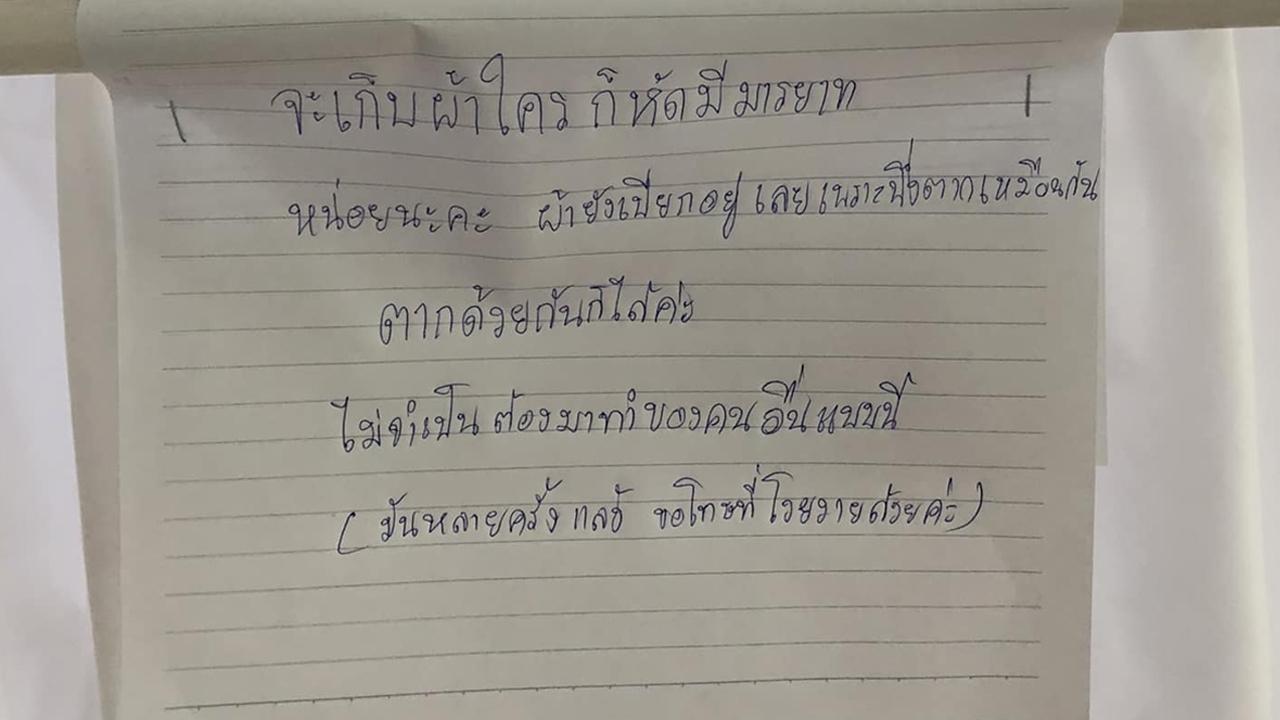 จะเก็บผ้าใคร ก็หัดมีมารยาท
หน่อยนะคะ ผ้ายังเปียกอยู่ เลยเพราะพึ่งตากเหมือนกัน
ตากด้วยกันก็ได้ค่ะ
ไม่จำเป็น ต้องมาทำของคนอื่นแบบนี้
(มันหลายครั้ง แล้ว ขอโทษที่โวยวายด้วยค่ะ)